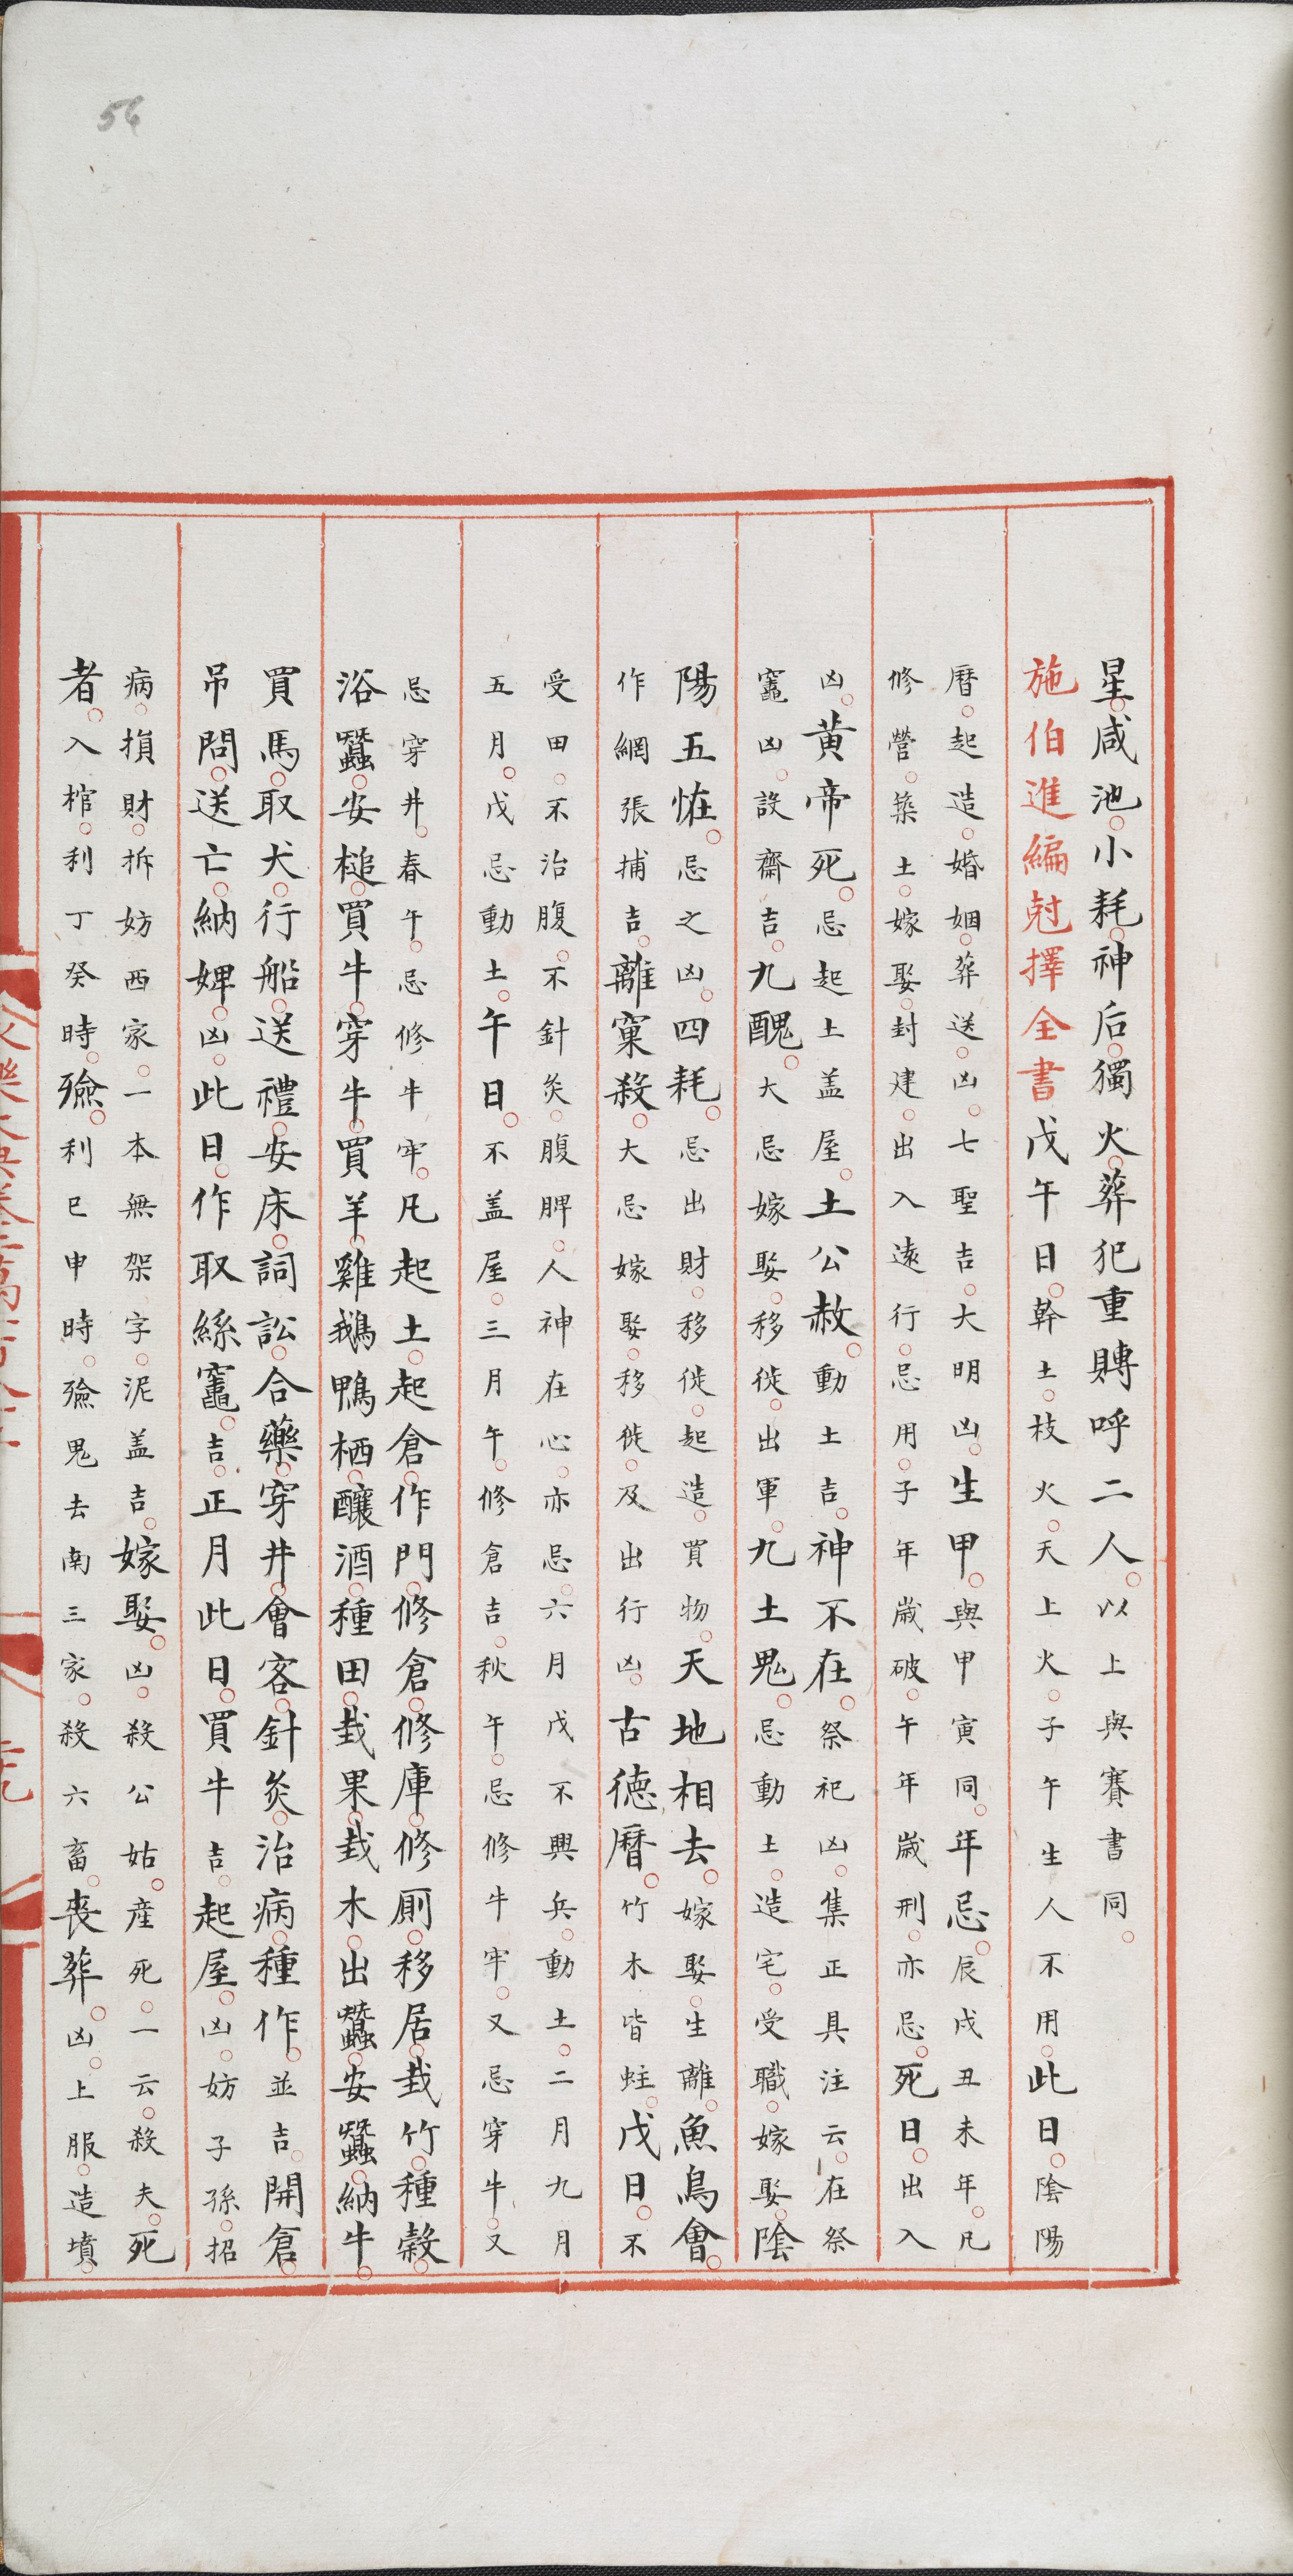 星。咸池。小耗。神后。獨火。葬犯重賻呼二人。以上與賽書同。
施伯進編尅擇全書戊午日。幹土。枝火。天上火。子午生人不用。此日。陰陽
曆。起造。婚姻。葬送。凶。七聖吉。大明凶。生甲。與甲寅同。年忌。辰戌丑未年。凡
修營。築土。嫁娶。封建。出入遠行。忌用。子年歲破。午年歲刑。亦忌。死日。出入
凶。黃帝死。忌起土盖屋。土公赦。動土吉。神不在。祭祀凶。集正具注云。在祭
竈凶。設齋吉。九醜。大忌嫁娶。移徙。出軍。九土鬼。忌動土。造宅。受職。嫁娶。陰
陽五恠。忌之凶。四耗。忌出財。移徙。起造。買物。天地相去。嫁娶。生離。魚鳥會。
作網張捕吉。離窠殺。大忌嫁娶。移徙。及出行凶。古德曆。竹木皆蛀。戊日。不
受田。不治腹。不針灸。腹脾。人神在心。亦忌。六月戊不興兵。動土。二月九月
五月。戊忌動土。午日。不盖屋。三月午。修倉吉。秋午。忌修牛牢。又忌穿牛。又
忌穿井。春午。忌修牛牢。凡起土。起倉。作門。修倉。修庫。修厠。移居。栽竹。種穀。
浴蠶。安槌。買牛。穿牛。買羊。雞鵝鴨栖。釀酒。種田。栽果。栽木。出蠶。安蠶。納牛。
買馬。取犬。行船。送禮。安床。詞訟。合藥。穿井。會客。針灸。治病。種作。並吉。開倉。
吊問。送亡。納婢。凶。此日。作取絲竈。吉。正月此日。買牛吉。起屋。凶。妨子孫。招
病。損財。拆妨西家。一本無架字。泥盖吉。嫁娶。凶。殺公姑。産死。一云。殺夫。死
者。入棺。利丁癸時。殮。利巳申時。殮鬼去南三家。殺六畜。喪葬。凶。上服。造墳。
56